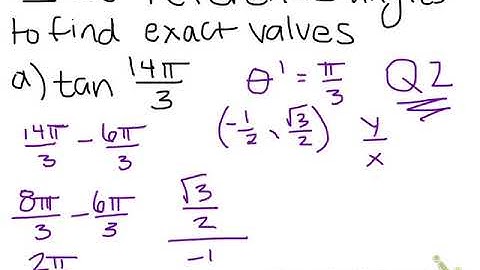 to find exact values
a) tan 14π/3 θ' = π/3 Q2
14π/3 - 6π/3 (-1/2, √3/2) y/x
8π/3 - 6π/3 √3/2
2π -1